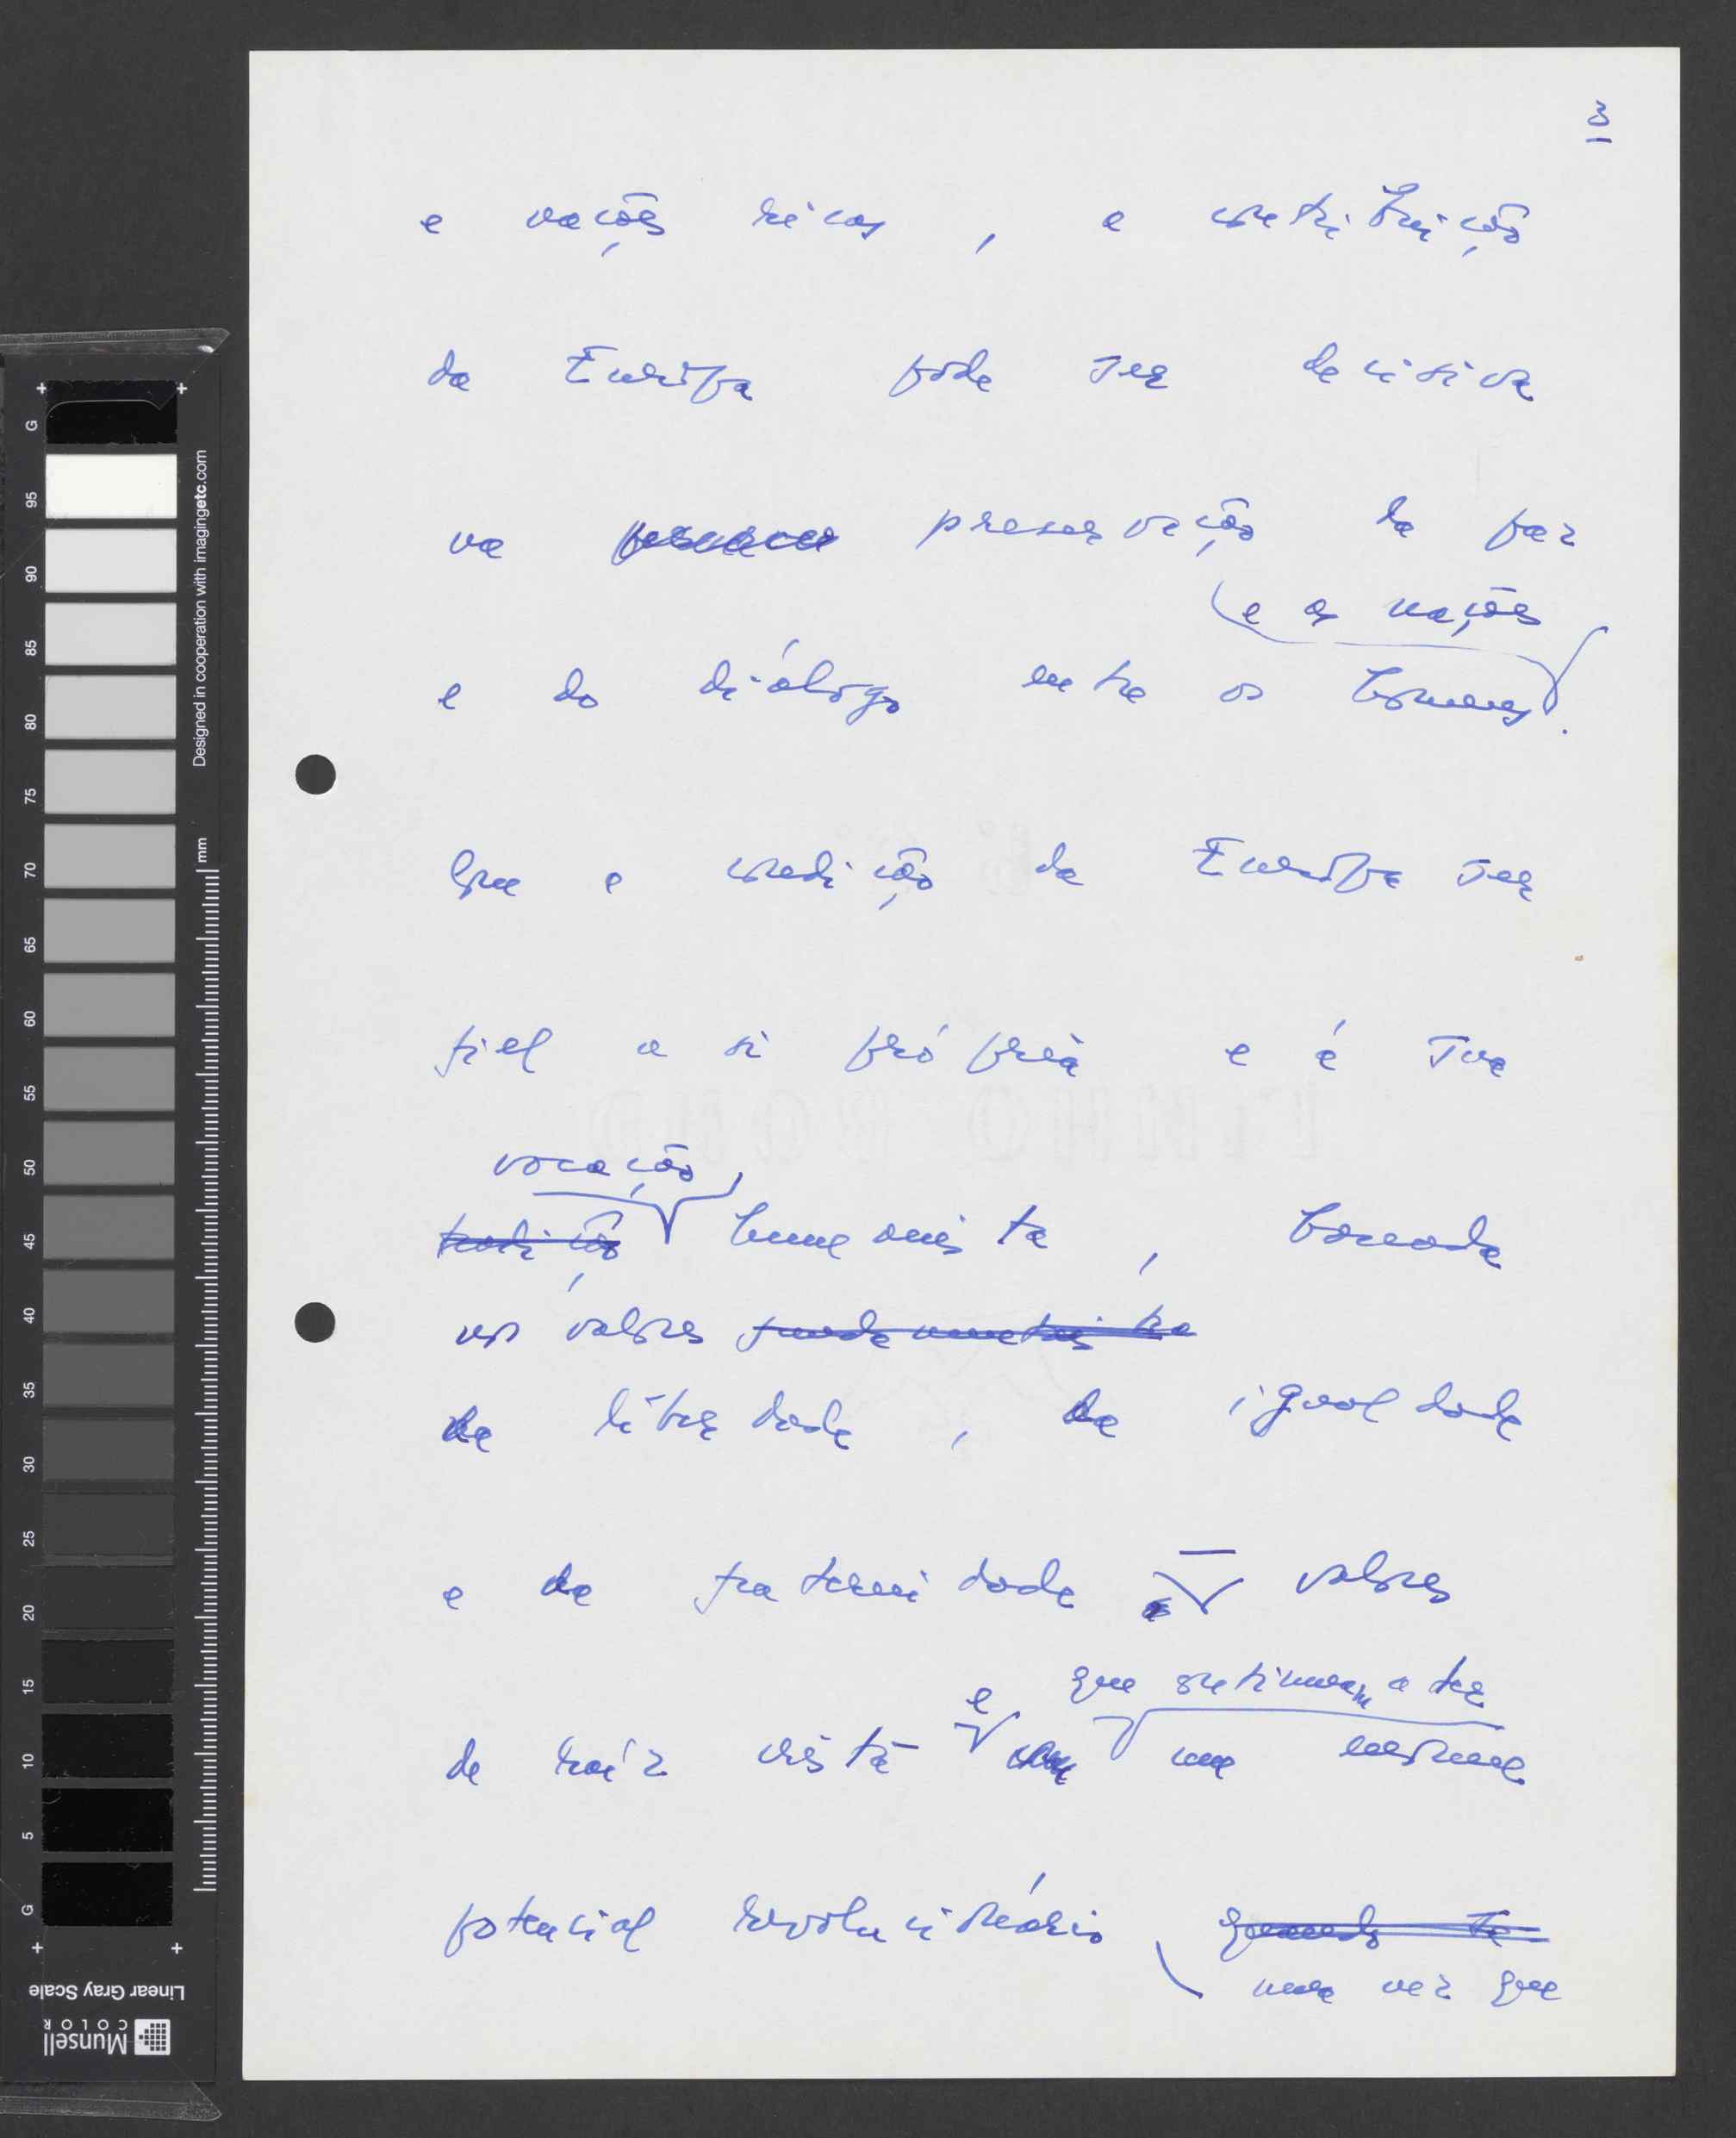 3
e nações ricas, a contribuição
da Europa pode ser decisiva
na preservação da paz
e as nações
e do diálogo entre os homens.
Que a condição da Europa ser
fiel a si própria e à sua
vocação,
tradição humanista, baseada
nos valores fundamentais
da liberdade, da igualdade
e da fraternidade — valores
e que continuam a ter
de raiz cristã um enorme
potencial revolucionário quando
uma vez que
G 95 90 85 80 75 70 65 60 55 50 45 40 35 30 25 20 15 10 5 G
Designed in cooperation with imagingetc.com
mm
Linear Gray Scale
Munsell
COLOR